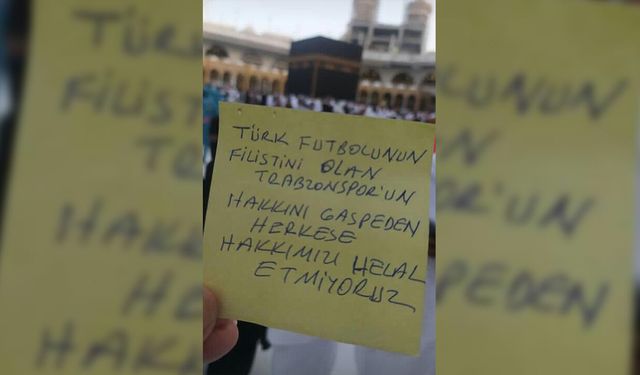 TÜRK FUTBOLUNUN
FİLİSTİNİ OLAN
TRABZONSPOR'UN
HAKKINI GASPEDEN
HERKESE
HAKKIMIZI HELAL
ETMİYORUZ